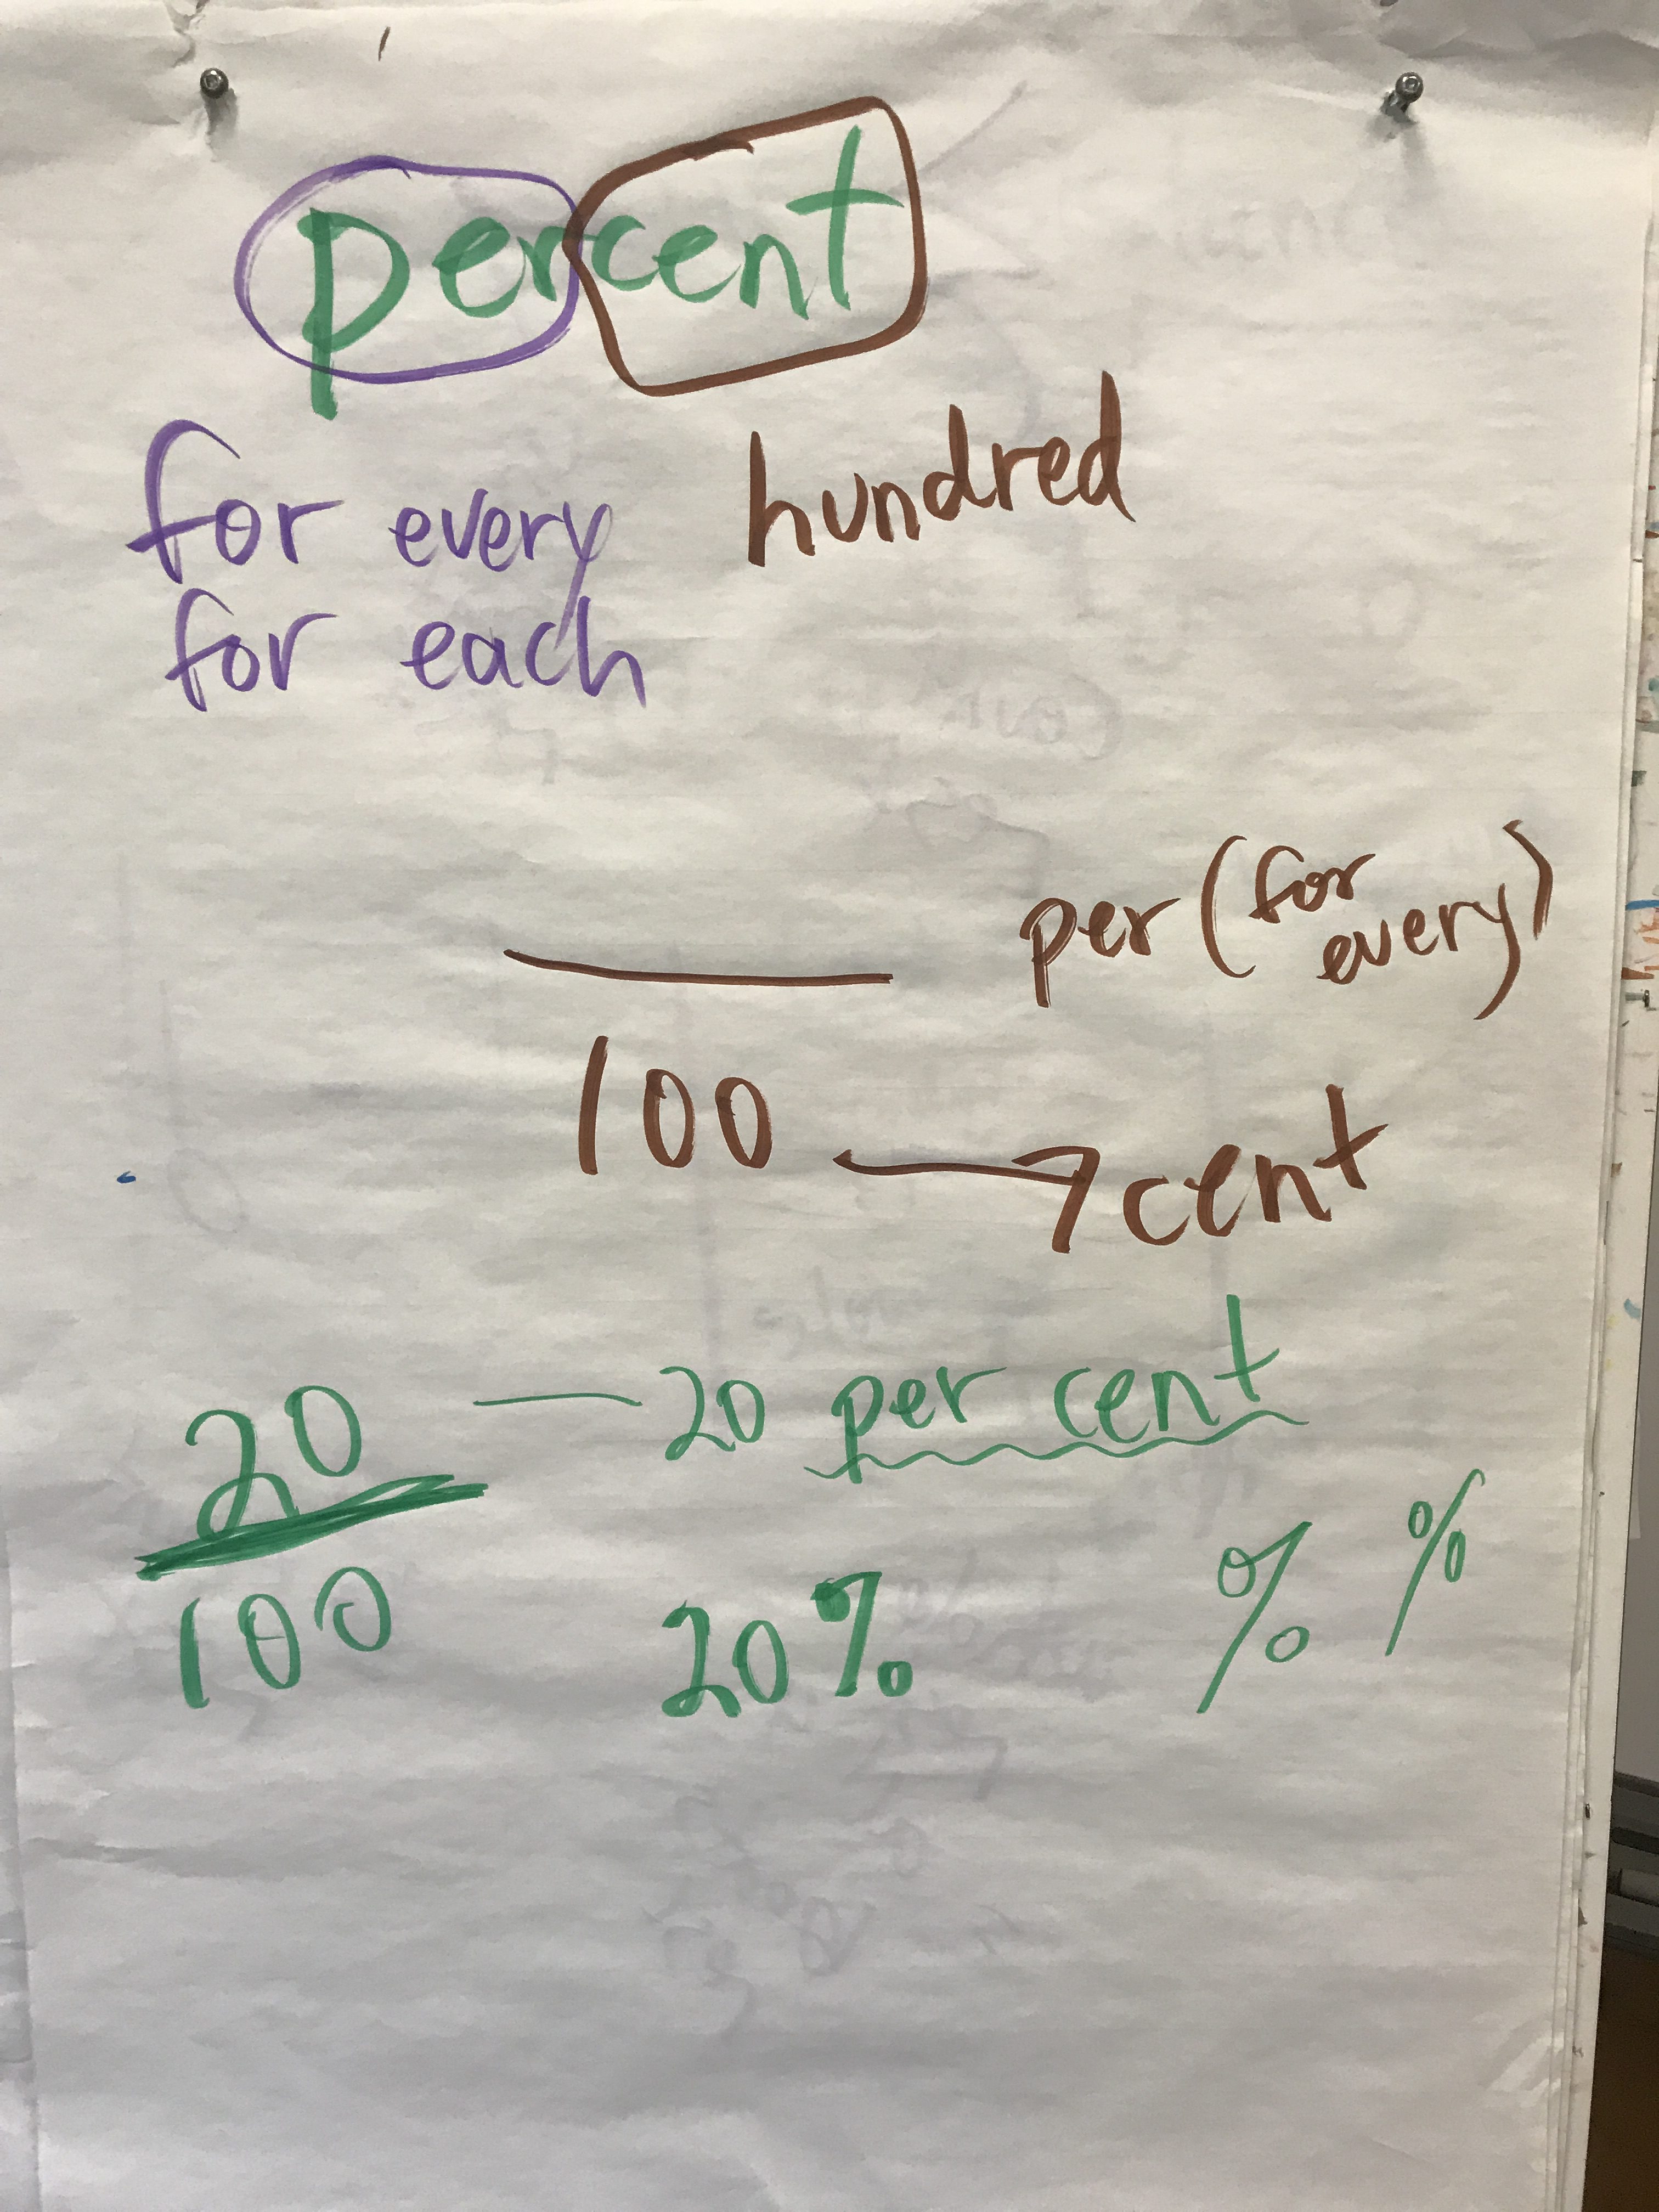 percent
for every hundred
for each
per (for every)
100 → cent
20/100 — 20 per cent
20% % %